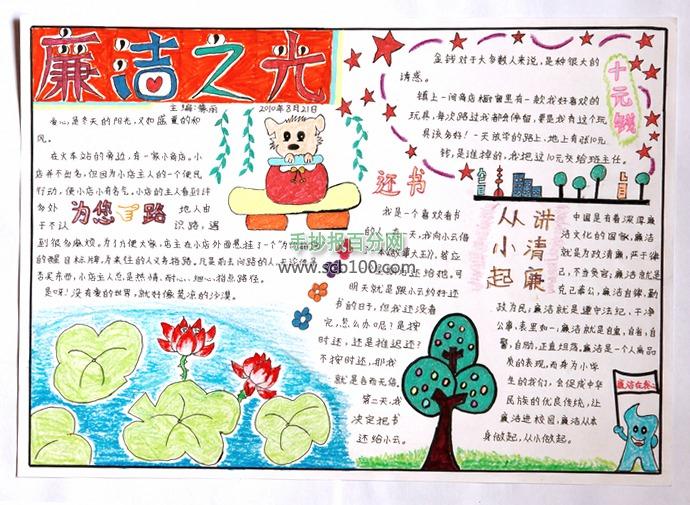 廉洁之光
主编:
2010年8月21日
爱心,是冬天的阳光,又如盛夏的和
风。
在火车站的旁边,有一家小商店。小
店并不出名,但因为小店主人的一个便民
行动,使小店小有名气。小店的主人看到许
多处
为您指路
地人由
于不认
识路,遇
到很多麻烦。为了方便大家,店主在小店外面悬挂了一个
是呀!没有爱的世界,就好像荒凉的沙漠。
还书
我是一个喜欢看书
的人。有一天,我向小云借
明天就是跟小云约好还
书的日子,但我还没看
完,怎么办呢?是按
时还,还是推迟还?
不按时还,那我
就是言而无信。
第二天,我
决定把书
还给小云。
十元钱
金钱对于大多数人来说,是种很大的
诱惑。
镇上一间商店橱窗里有一款我好喜欢的
玩具,每次路过我都会停留,要是我有这个玩
具该多好!一天放学的路上,地上有张10元
钱,是谁掉的,我把这10元交给班主任。
从小讲起清廉
中国是有着深厚廉
洁文化的国家,廉洁
就是为政清廉,严于律
己,不旁受
克己奉公,廉洁自律,勤
政为民;廉洁就是遵守法纪,干净
公事,表里如一;廉洁就是自重,自省,自
警,自励,正直坦荡。廉洁是一个人高品
质的表现。而身为小学
生的我们,会促成中华
民族的优良传统,让
廉洁进校园,廉洁从本
身做起,从小做起。
廉洁在我心
手抄报百分网
www.scb100.com